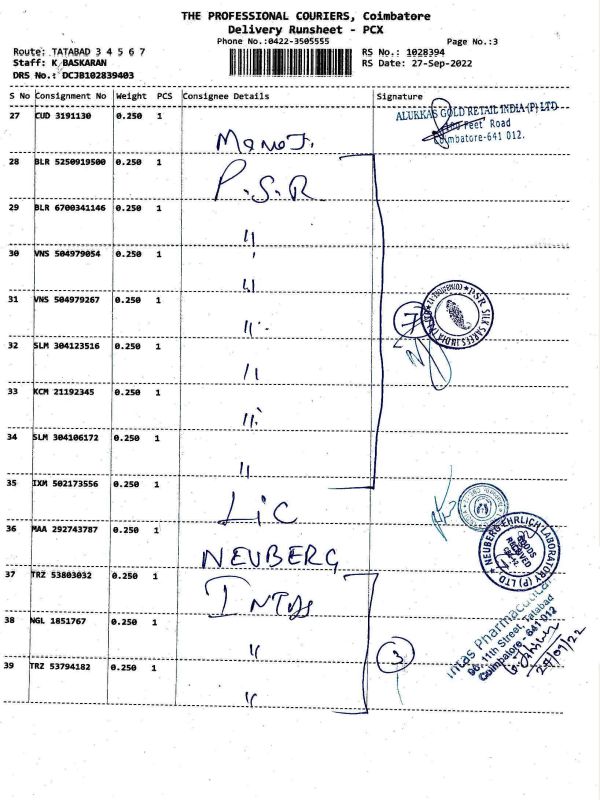 THE PROFESSIONAL COURIERS, Coimbatore
Delivery Runsheet - PCX
Phone No.:0422-3505555
Page No.:3
Route: TATABAD 3 4 5 6 7
RS No.: 1028394
Staff: K BASKARAN
RS Date: 27-Sep-2022
DRS No.: DCJB102839403
S No Consignment No Weight PCS Consignee Details Signature
27 CUD 3191130 0.250 1
ALUKKAS GOLD RETAIL INDIA (P) LTD
100 Feet Road
Coimbatore-641 012.
28 BLR 5250919500 0.250 1 P.S.R
29 BLR 6700341146 0.250 1 "
30 VNS 504979054 0.250 1 "
31 VNS 504979267 0.250 1 "
7
PSR SILK SAREES INDIA
32 SLM 304123516 0.250 1 "
33 KCM 21192345 0.250 1 "
34 SLM 304106172 0.250 1 "
35 IXM 502173556 0.250 1 LIC
36 MAA 292743787 0.250 1 NEUBERG
NEUBERG EHRLICH LABORATORY (P) LTD.
GOODS
RECEIVED
37 TRZ 53803032 0.250 1 INTAS
38 NGL 1851767 0.250 1 "
3
Intas Pharmaceutical
96, 11th Street, Tatabad
Coimbatore - 641 012
39 TRZ 53794182 0.250 1 "